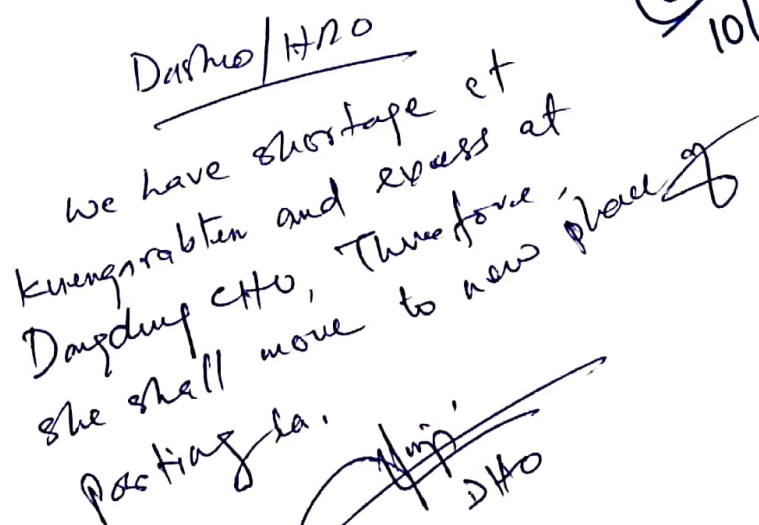 10/
Dasho/HRO
We have shortage et
Kuengarabten and excess at
Dangdung CHO, Therefore,
she shall move to new place of
posting la.
DHO